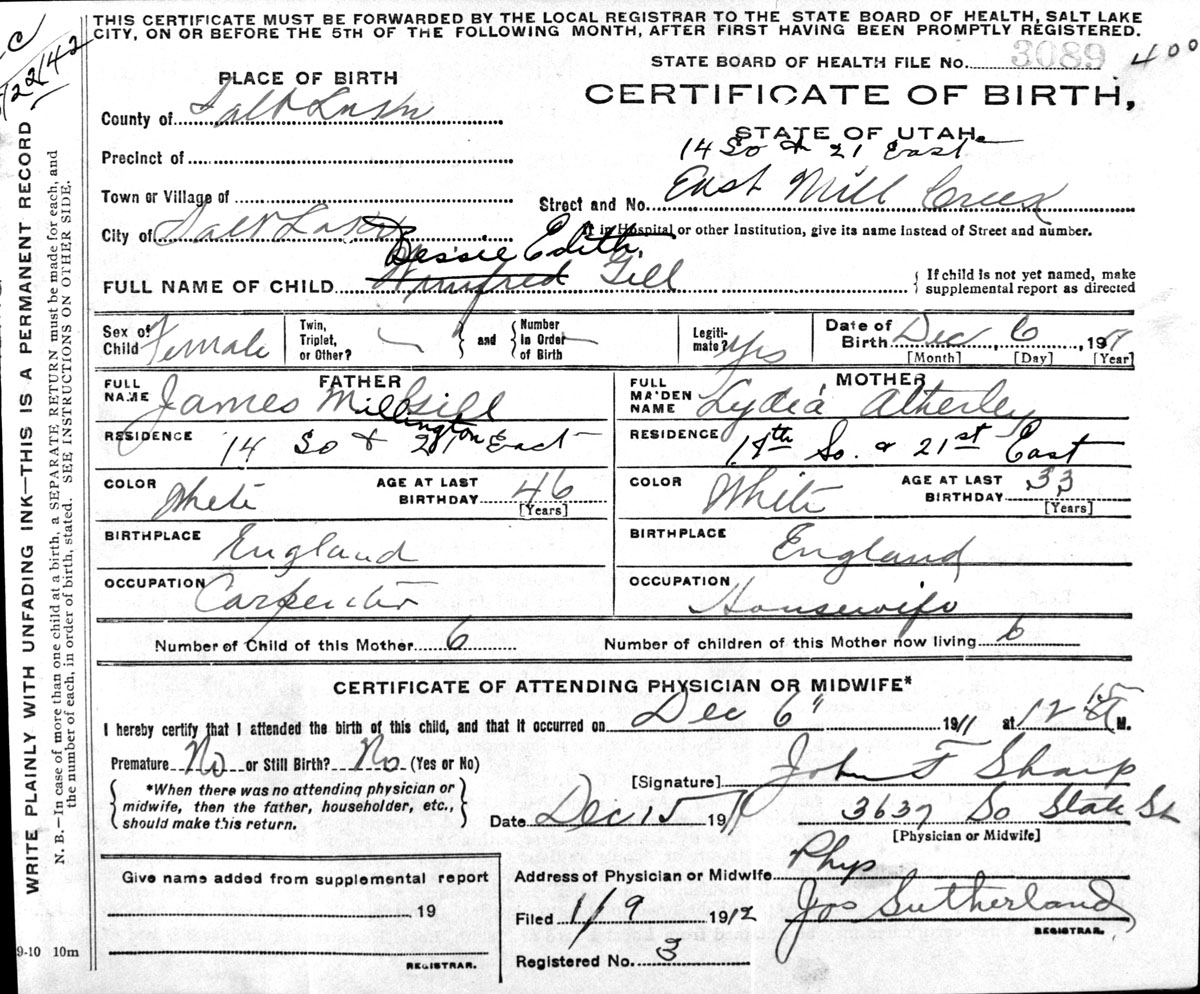 THIS CERTIFICATE MUST BE FORWARDED BY THE LOCAL REGISTRAR TO THE STATE BOARD OF HEALTH, SALT LAKE
CITY, ON OR BEFORE THE 5TH OF THE FOLLOWING MONTH, AFTER FIRST HAVING BEEN PROMPTLY REGISTERED.
STATE BOARD OF HEALTH FILE No. 3089 400
PLACE OF BIRTH
CERTIFICATE OF BIRTH,
County of Salt Lake
STATE OF UTAH.
Precinct of
14 So & 21 East
Town or Village of
Street and No. East Mill Creek
City of Salt Lake
If in Hospital or other Institution, give its name instead of Street and number.
Bessie Edith
FULL NAME OF CHILD Winifred Gill
{If child is not yet named, make
supplemental report as directed
Sex of Child Female
Twin, Triplet, or Other? } and { Number in Order of Birth
Legitimate? Yes
Date of Birth Dec 6, 1911
[Month] [Day] [Year]
FATHER
FULL NAME James Millington Gill
RESIDENCE 14 So & 21 East
COLOR White AGE AT LAST BIRTHDAY 46
[Years]
BIRTHPLACE England
OCCUPATION Carpenter
MOTHER
FULL MAIDEN NAME Lydia Atherley
RESIDENCE 14th So. & 21st East
COLOR White AGE AT LAST BIRTHDAY 33
[Years]
BIRTHPLACE England
OCCUPATION Housewife
Number of Child of this Mother 6 Number of children of this Mother now living 6
CERTIFICATE OF ATTENDING PHYSICIAN OR MIDWIFE*
I hereby certify that I attended the birth of this child, and that it occurred on Dec 6" 1911 at 12 15 M.
Premature No or Still Birth? No (Yes or No)
[Signature] John F Sharp
{*When there was no attending physician or
midwife, then the father, householder, etc.,
should make this return.}
Date Dec 15 1911 3637 So State St
[Physician or Midwife]
Address of Physician or Midwife Phys
Filed 1/9 1912 Jos Sutherland
REGISTRAR.
Registered No. 3
Give name added from supplemental report
19
REGISTRAR.
9-10 10m
WRITE PLAINLY WITH UNFADING INK—THIS IS A PERMANENT RECORD
N. B.—In case of more than one child at a birth, a SEPARATE RETURN must be made for each, and
the number of each, in order of birth, stated. SEE INSTRUCTIONS ON OTHER SIDE.